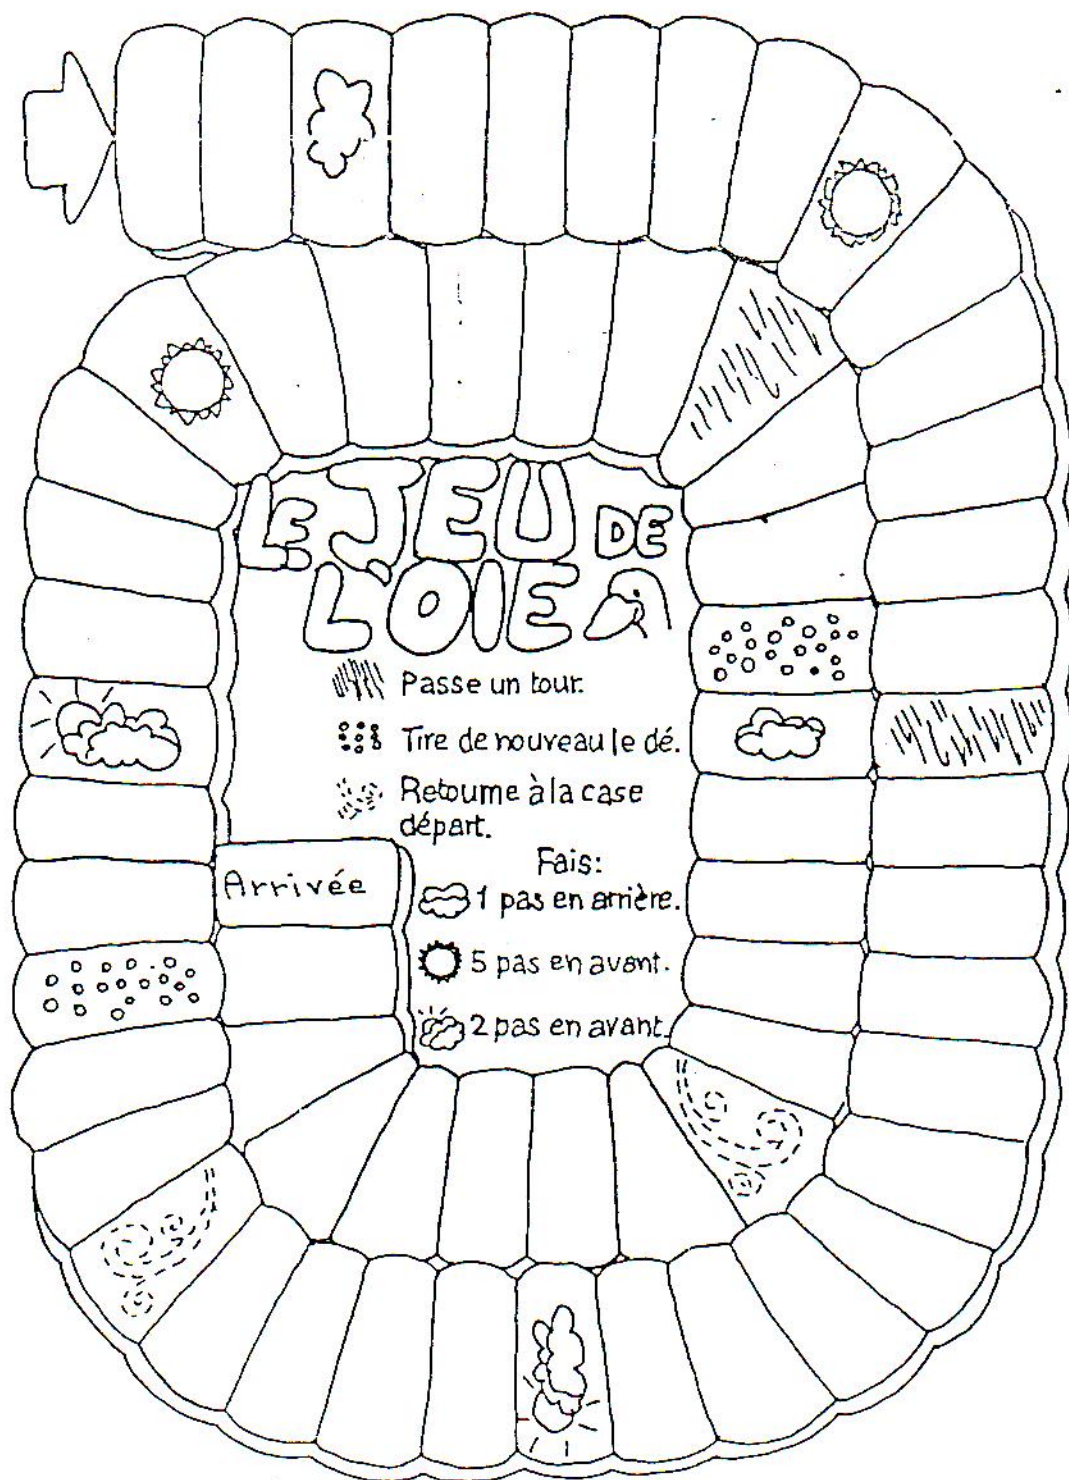 LE JEU DE
L'OIE
Passe un tour.
Tire de nouveau le dé.
Retourne à la case
départ.
Fais:
1 pas en arrière.
5 pas en avant.
2 pas en avant.
Arrivée